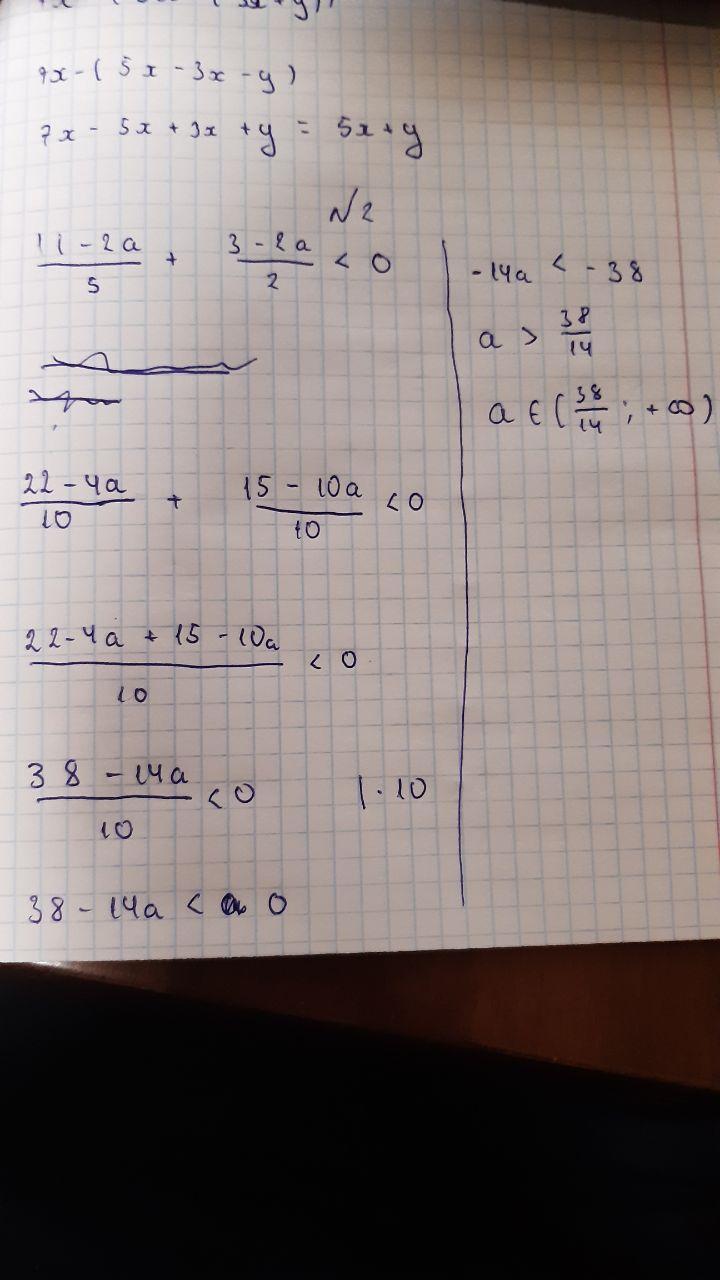 7x - ( 5x - 3x - y )
7x - 5x + 3x + y = 5x + y
№2
11 - 2a / 5 + 3 - 2a / 2 < 0
22 - 4a / 10 + 15 - 10a / 10 < 0
22 - 4a + 15 - 10a / 10 < 0
38 - 14a / 10 < 0 | · 10
38 - 14a < 0
-14a < -38
a > 38/14
a ∈ ( 38/14 ; + ∞ )